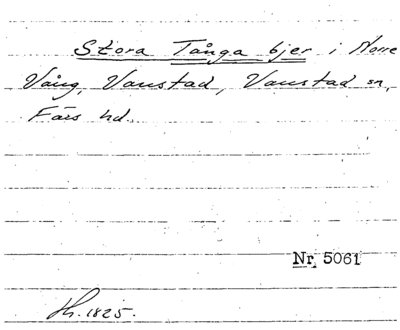 Stora Tånga bjer i Norre
Vång, Vanstad, Vanstad sn,
Färs hd.
Nr 5061
Sk. 1825.